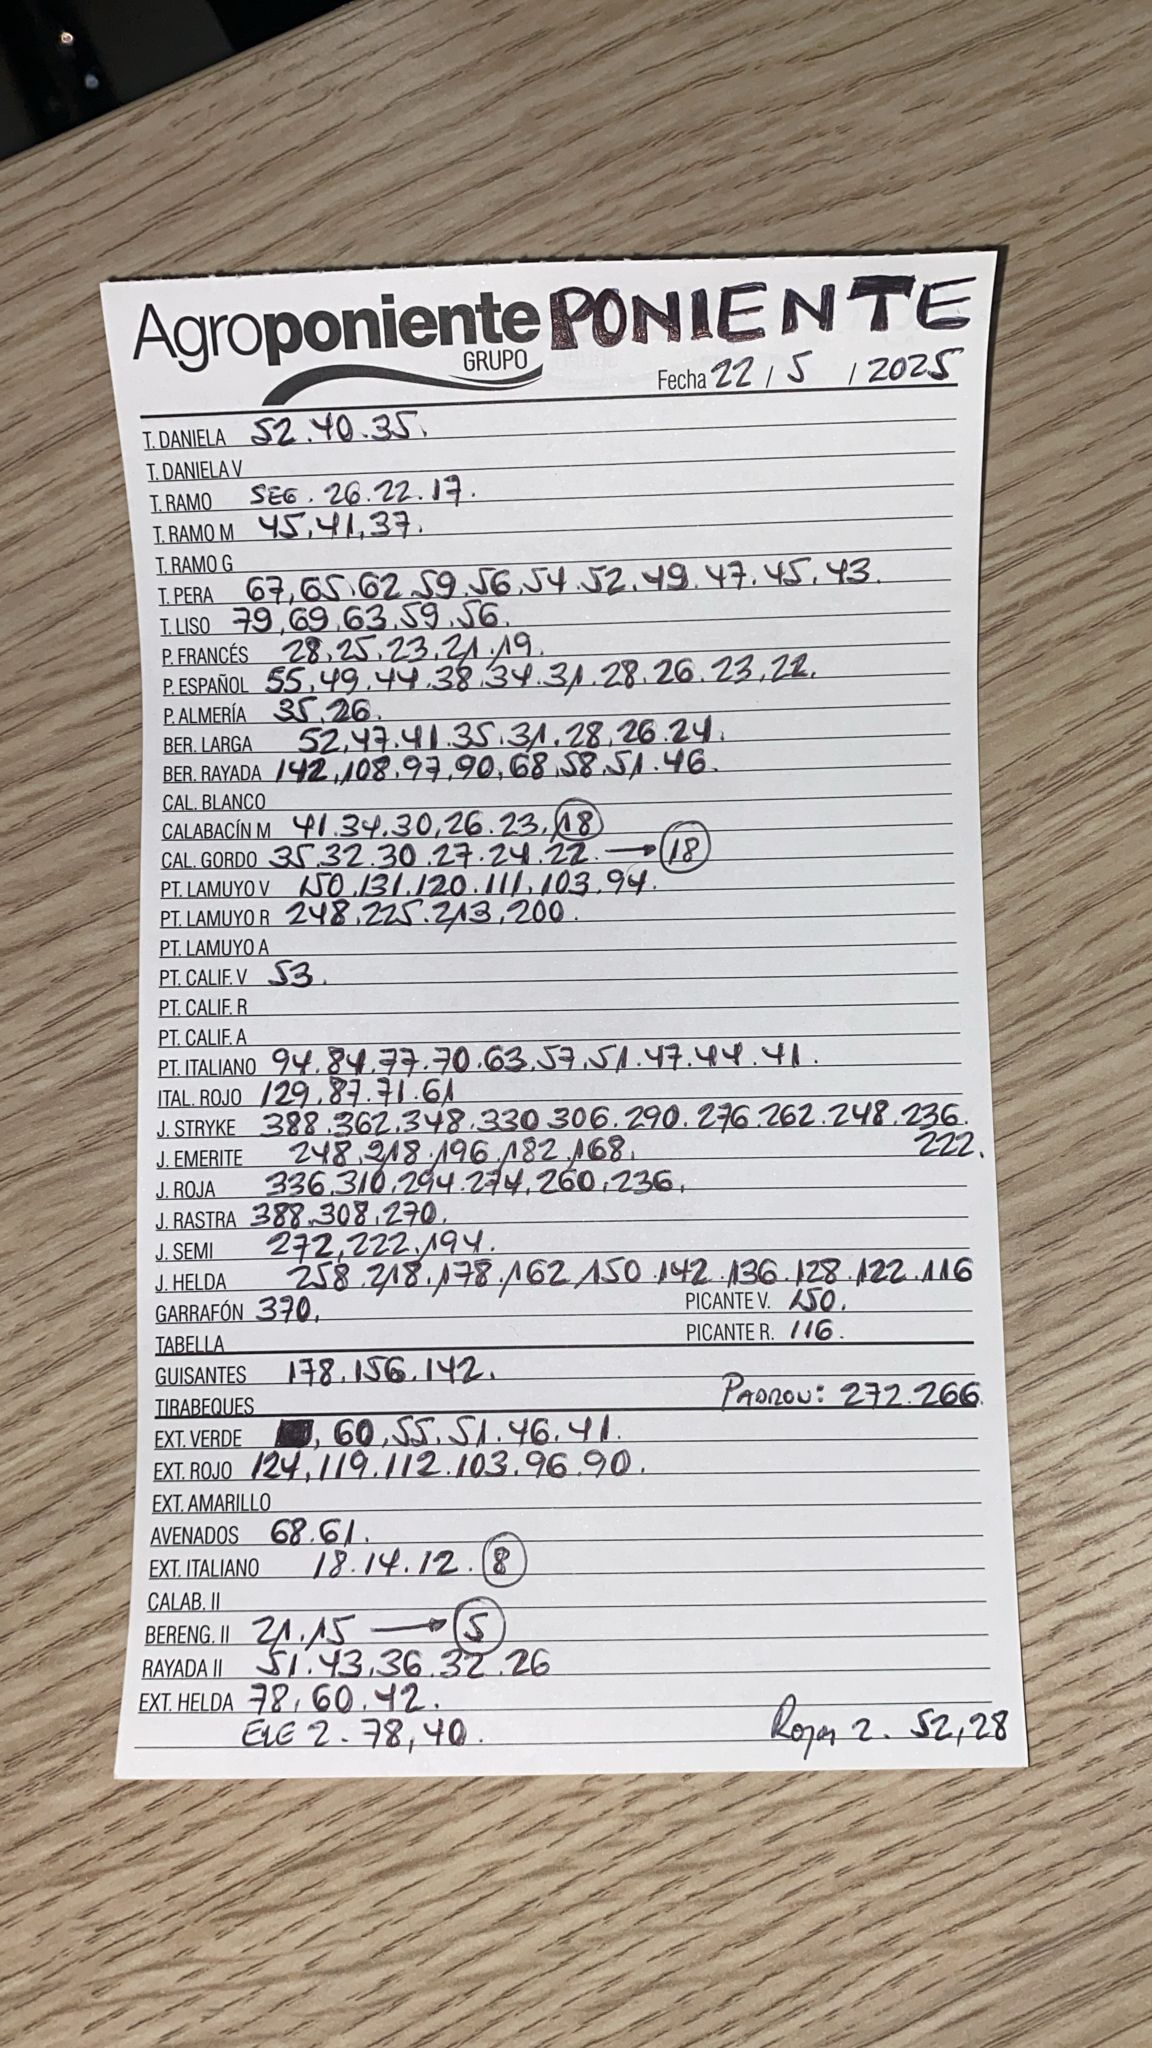 Agroponiente PONIENTE
GRUPO
Fecha 22 / 5 / 2025
T. DANIELA 52.40.35.
T. DANIELA V
T. RAMO SEG. 26.22.17.
T. RAMO M 45,41,37.
T. RAMO G
T. PERA 67,65,62.59.56,54.52.49.47.45,43.
T. LISO 79,69,63,59,56.
P. FRANCÉS 28,25,23,21,19.
P. ESPAÑOL 55,49,44.38.34.31.28.26.23,22.
P. ALMERÍA 35,26.
BER. LARGA 52,47.41.35.31.28,26.24.
BER. RAYADA 142,108.97,90,68,58,51.46.
CAL. BLANCO
CALABACÍN M 41.34.30,26.23,18
CAL. GORDO 35.32.30.27.24.22. → 18
PT. LAMUYO V 150,131,120.111,103,94.
PT. LAMUYO R 248,225.213,200.
PT. LAMUYO A
PT. CALIF. V 53.
PT. CALIF. R
PT. CALIF. A
PT. ITALIANO 94.84.77.70.63.57.51.47.44.41.
ITAL. ROJO 129,87.71.61
J. STRYKE 388.362,348.330.306.290.276.262.248.236.
222.
J. EMERITE 248,218,196,182,168.
J. ROJA 336,310,294.274,260,236,
J. RASTRA 388,308,270.
J. SEMI 272,222,194.
J. HELDA 258.218,178,162,150.142.136.128.122.116
GARRAFÓN 370. PICANTE V. 150.
TABELLA PICANTE R. 116.
GUISANTES 178.156.142.
TIRABEQUES PADRON: 272.266.
EXT. VERDE , 60,55.51.46.41.
EXT. ROJO 124,119.112.103.96.90.
EXT. AMARILLO
AVENADOS 68.61.
EXT. ITALIANO 18.14.12.8
CALAB. II
BERENG. II 21.15 → 5
RAYADA II 51.43,36.32.26
EXT. HELDA 78,60.42.
ELE 2. 78,40. Roja 2. 52,28